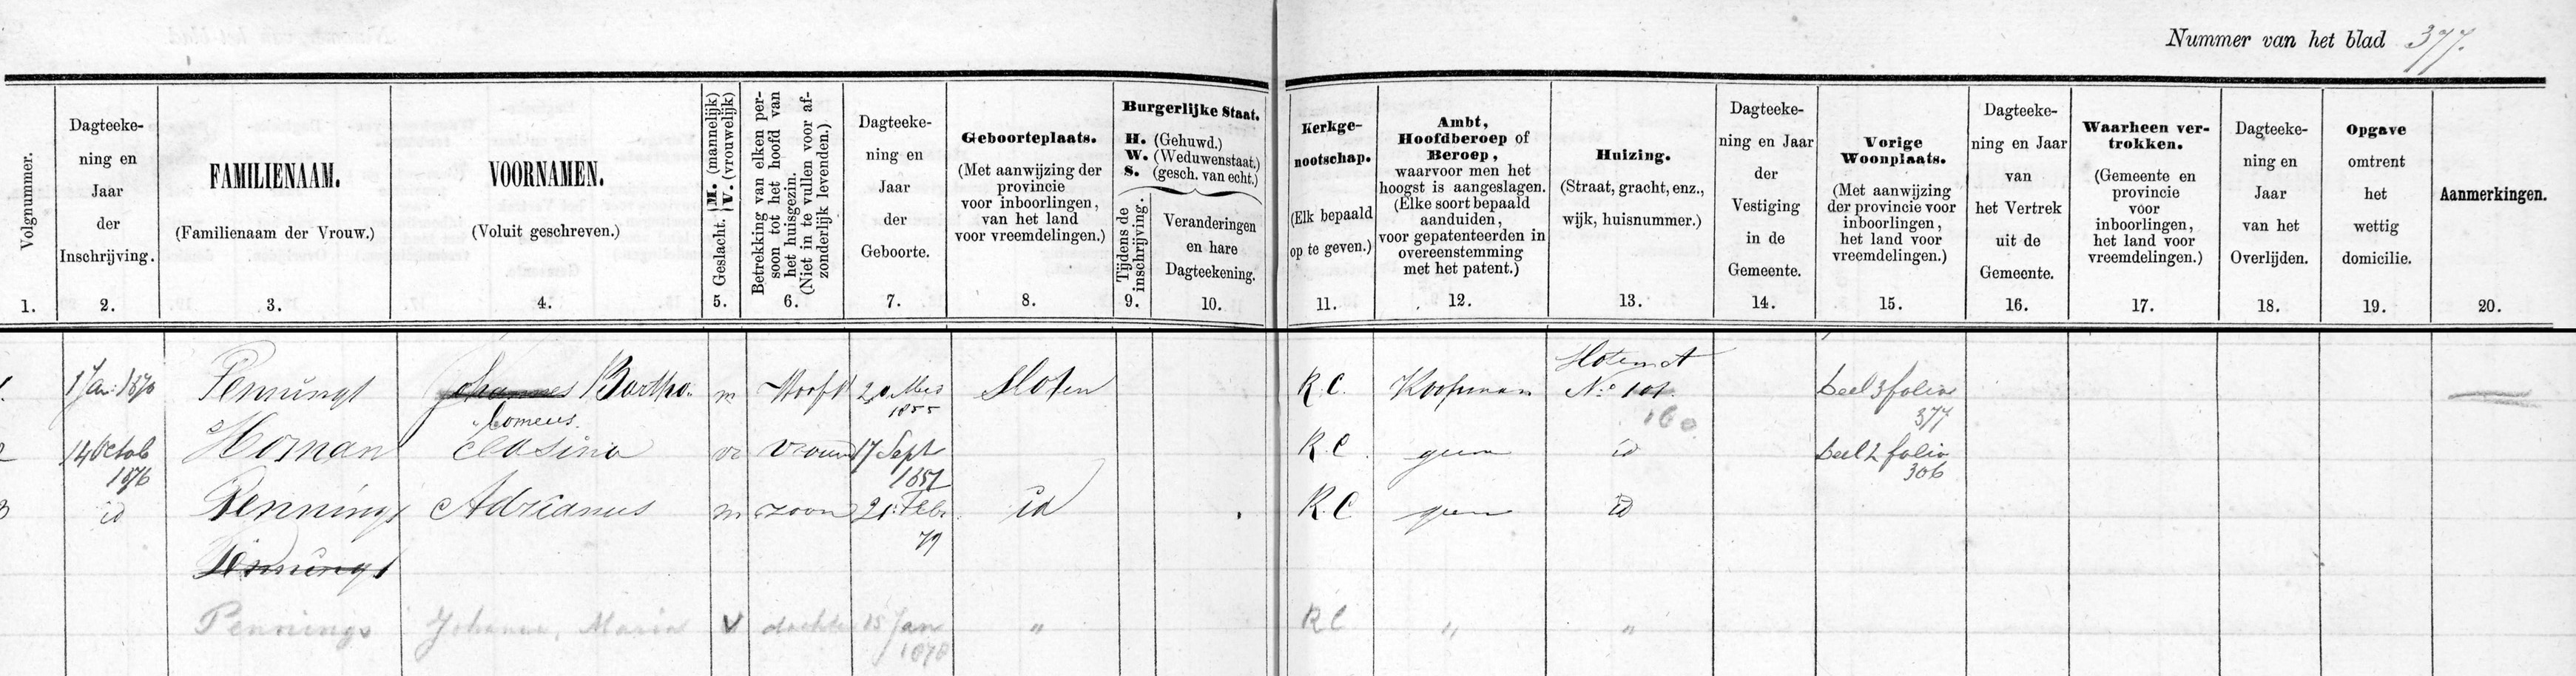 Nummer van het blad 377.
Volgnummer.
1.
Dagteeke-
ning en
Jaar
der
Inschrijving.
2.
FAMILIENAAM.
(Familienaam der Vrouw.)
3.
VOORNAMEN.
(Voluit geschreven.)
4.
Geslacht. M. (mannelijk) V. (vrouwelijk)
5.
Betrekking van elken per-
soon tot het hoofd van
het huisgezin.
(Niet in te vullen voor af-
zonderlijk levenden.)
6.
Dagteeke-
ning en
Jaar
der
Geboorte.
7.
Geboorteplaats.
(Met aanwijzing der
provincie
voor inboorlingen,
van het land
voor vreemdelingen.)
8.
Burgerlijke Staat.
H. (Gehuwd.)
W. (Weduwenstaat.)
S. (gesch. van echt.)
Tijdens de
inschrijving.
9.
Veranderingen
en hare
Dagteekening.
10.
Kerkge-
nootschap.
(Elk bepaald
op te geven.)
11.
Ambt,
Hoofdberoep of
Beroep,
waarvoor men het
hoogst is aangeslagen.
(Elke soort bepaald
aanduiden,
voor gepatenteerden in
overeenstemming
met het patent.)
12.
Huizing.
(Straat, gracht, enz.,
wijk, huisnummer.)
13.
Dagteeke-
ning en Jaar
der
Vestiging
in de
Gemeente.
14.
Vorige
Woonplaats.
(Met aanwijzing
der provincie voor
inboorlingen,
het land voor
vreemdelingen.)
15.
Dagteeke-
ning en Jaar
van
het Vertrek
uit de
Gemeente.
16.
Waarheen ver-
trokken.
(Gemeente en
provincie
voor
inboorlingen,
het land voor
vreemdelingen.)
17.
Dagteeke-
ning en
Jaar
van het
Overlijden.
18.
Opgave
omtrent
het
wettig
domicilie.
19.
Aanmerkingen.
20.
1 Jan: 1870 Pennings Johannes Bartho- m Hoofd 1855 Sloten R.C. Koopman Sloten A No 101. Deel 3 folio
lomeus. 160 377
2 14 Octob Homan Clasina vr vrouw 17 Sept R.C. geen id Deel 2 folio
1876 1851 306
3 id Pennings Adrianus m zoon 21 Febr id R.C geen id
Pennings
Pennings Johanna, Maria V dochter 15 Jan " RC " "
1878